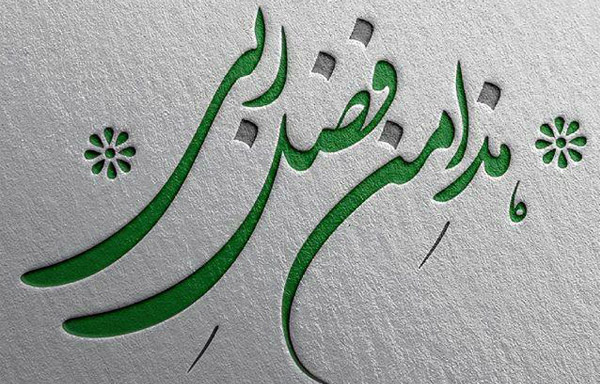 هذا مِن فضلِ ربی